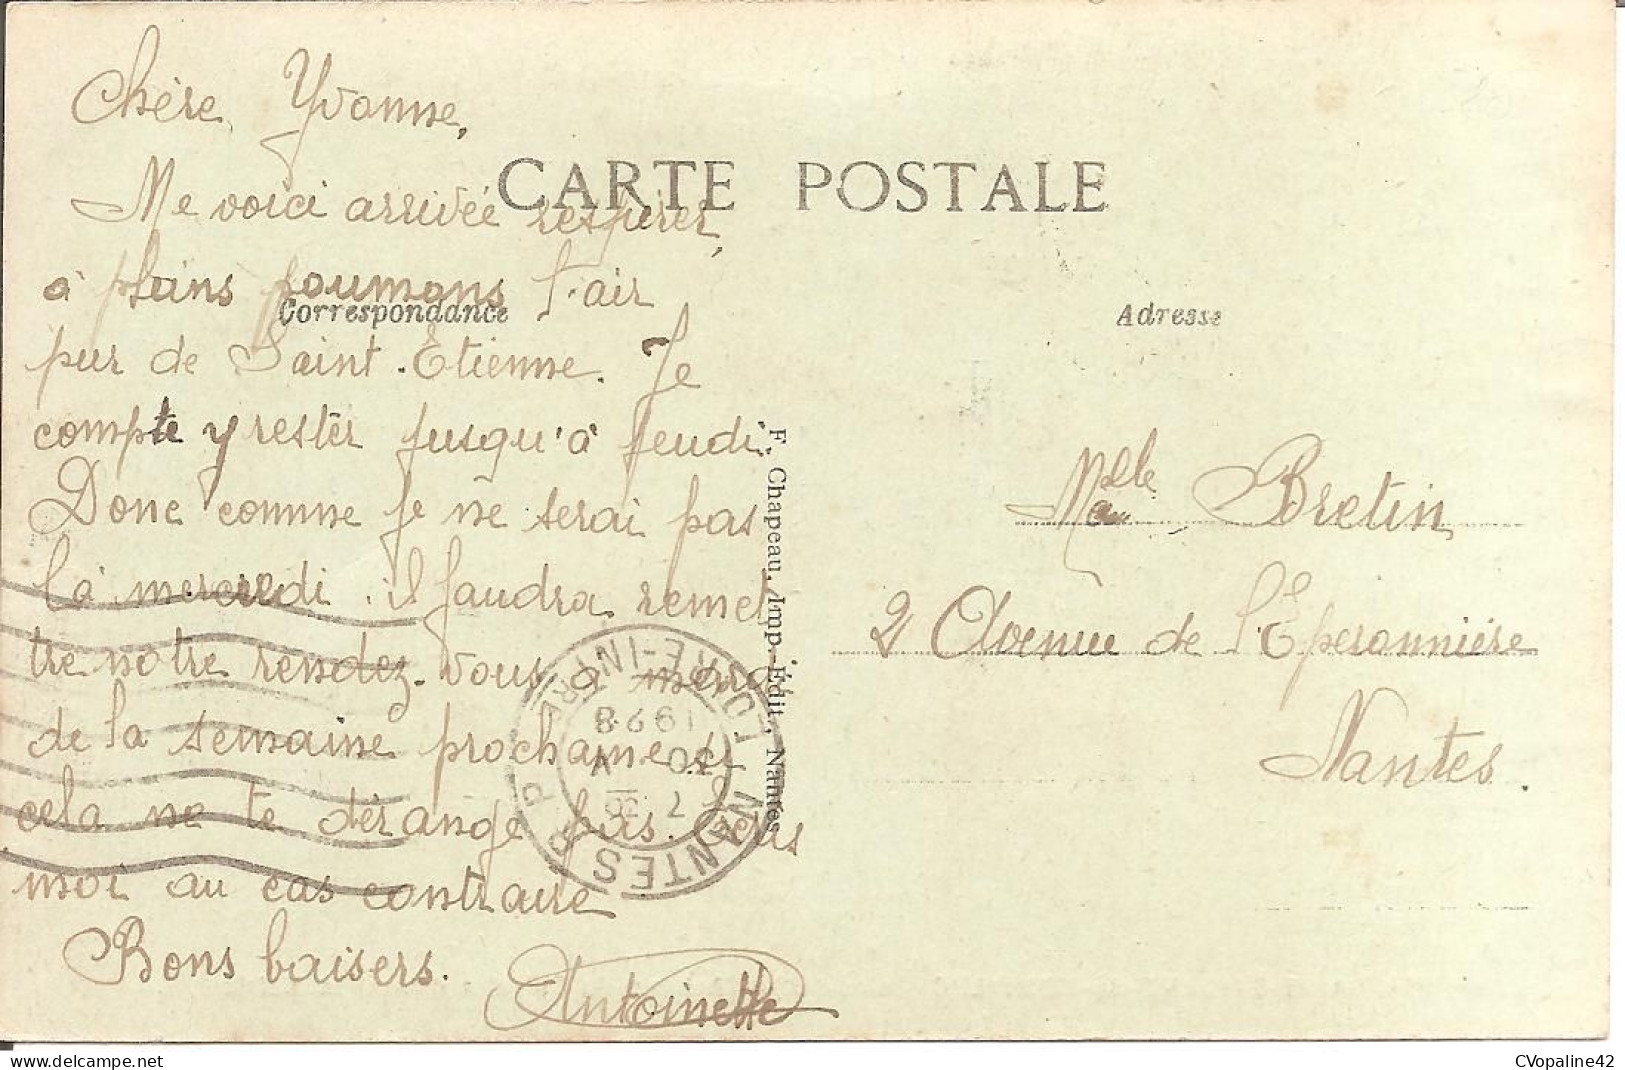 Chère Yvonne,
CARTE POSTALE
Me voici arrivée respirer
à pleins poumons l'air
Correspondance
pur de Saint-Etienne. Je
compte y rester jusqu'à jeudi.
Donc comme je ne serai pas
là mercredi il faudra remet
tre notre rendez-vous à mercre
de la semaine prochaine si
cela ne te dérange pas. Ecris
moi au cas contraire
Bons baisers.
Antoinette
F. Chapeau, Imp. Édit., Nantes
NANTES R.P.
LOIRE-INFRE
7 30
1928
Adresse
Melle Bretin
2 Avenue de l'Eperonnière
Nantes.
CVopaline42